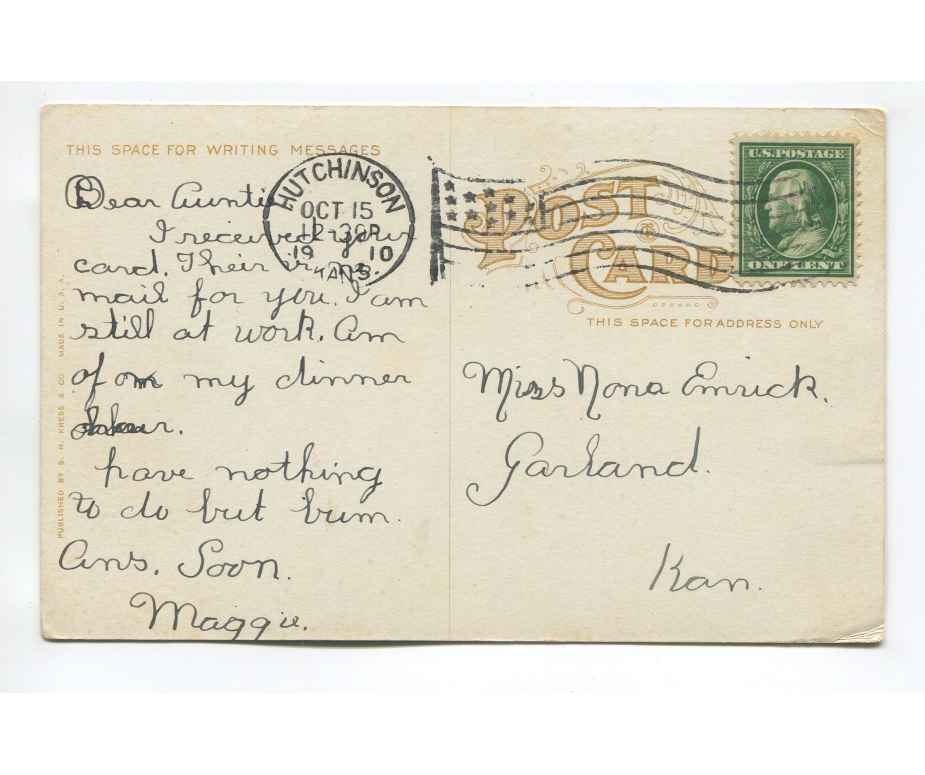 THIS SPACE FOR WRITING MESSAGES
Dear Auntie
I received your
card. Their is no
mail for you. I am
still at work. Am
of on my dinner
hour.
have nothing
to do but bum.
Ans. Soon.
Maggie.
PUBLISHED BY S. H. KRESS & CO. MADE IN U.S.A.
HUTCHINSON
OCT 15
12-30P
1910
KANS.
POST
CARD
THIS SPACE FOR ADDRESS ONLY
U.S. POSTAGE
ONE CENT
Miss Nona Emrick.
Garland.
Kan.